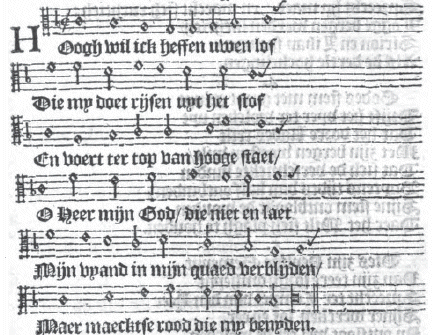 Hoogh wil ick heffen uwen lof
Die my doet rijsen uyt het stof
En voert ter top van hooge staet/
O Heer mijn God/ die niet en laet
Mijn vyand in mijn quaed verblijden/
Maer maecktse rood die my benyden.